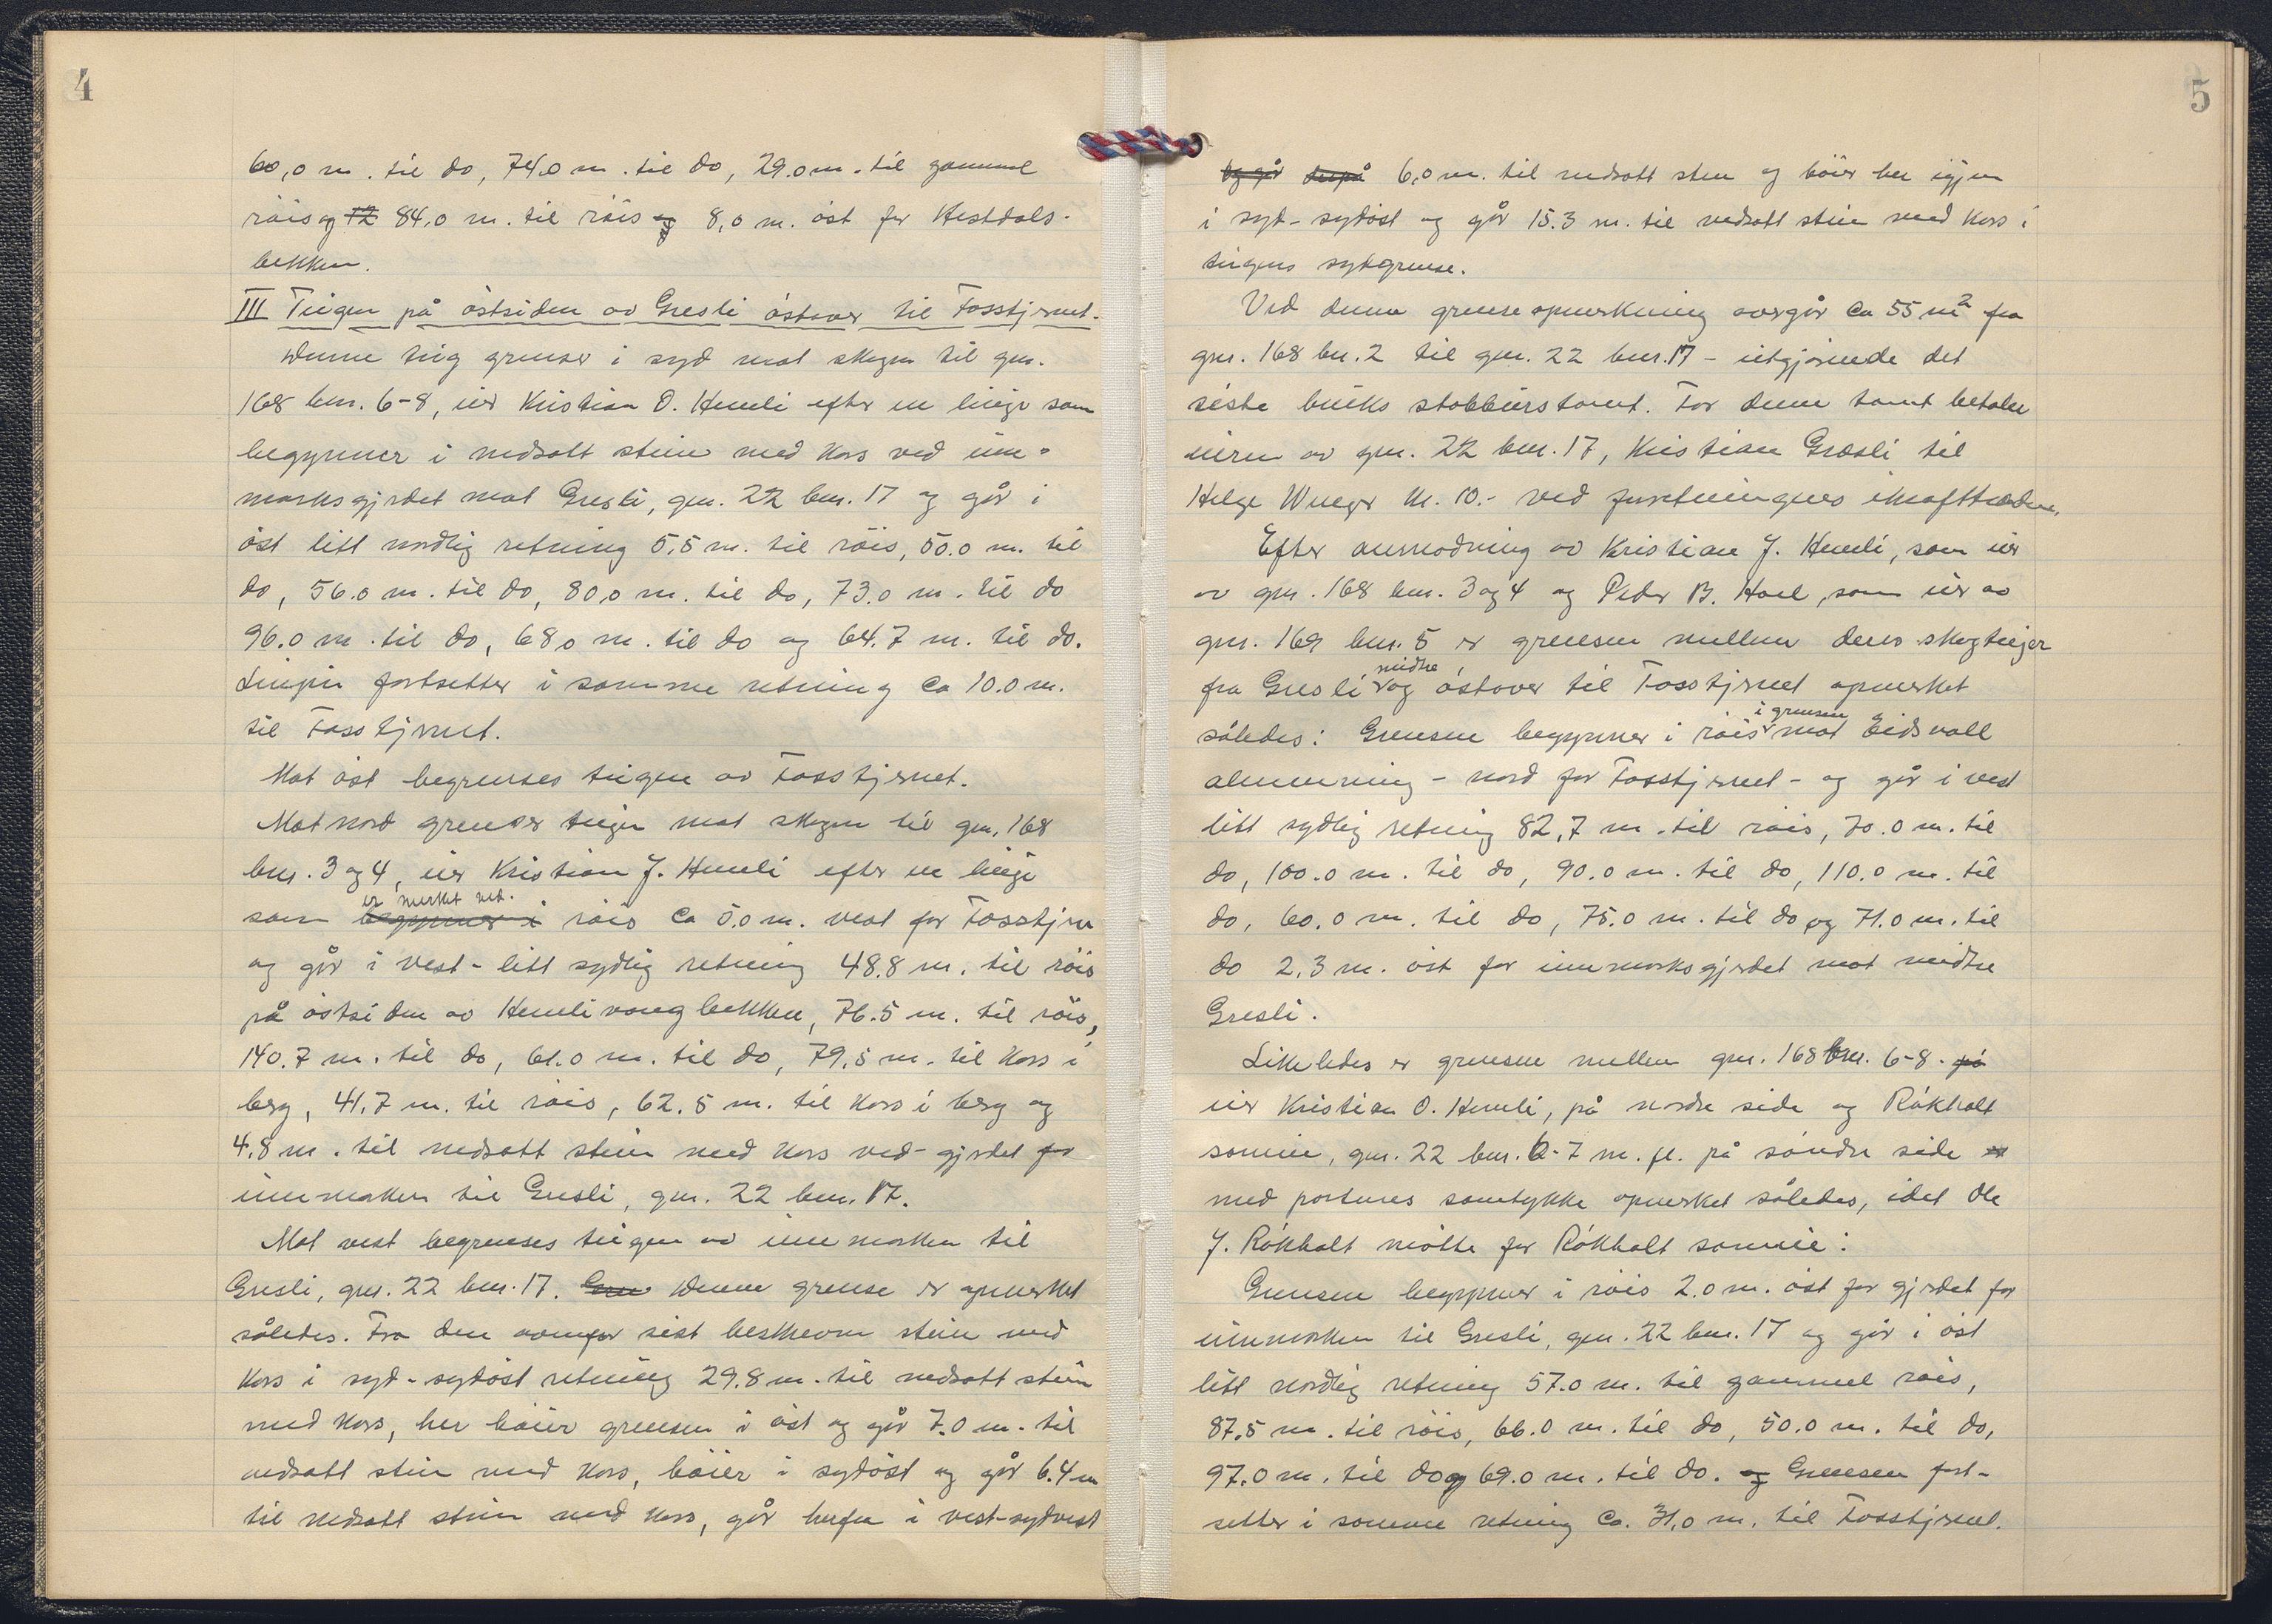 4
60,0 m. til do, 74,0 m. til do, 29.0 m. til gammel
röis og 12 84,0 m. til röis og 8,0 m. öst for Hestdals-
bekken.
III Teigen på östsiden av Gresli östover til Fosstjernet.
Denne teig grenser i syd mot skogen til gnr.
168 bnr. 6-8, eier Kristian O. Hemli efter en linje som
begynner i nedsatt stein med kors ved inn-
marksgjerdet mot Gresli, gnr. 22 bnr. 17 og går i
öst litt nordlig retning 5,5 m. til röis, 50.0 m. til
do, 56.0 m. til do, 80,0 m. til do, 73.0 m. til do
96.0 m. til do, 68,0 m. til do og 64.7 m. til do.
Linjen fortsetter i samme retning ca 10.0 m.
til Fosstjernet.
Mot öst begrenses teigen av Fosstjernet.
Mot nord grenser teigen mot skogen til gnr. 168
bnr. 3 og 4, eier Kristian J. Hemli efter en linje
er merket ved.
som begynner i röis ca 5.0 m. vest for Fosstjern
og går i vest - litt sydlig retning 48.8 m. til röis
på östsiden av Hemlivangbekken, 76.5 m. til röis,
140.7 m. til do, 61.0 m. til do, 79,5 m. til kors i
berg, 41,7 m. til röis, 62.5 m. til kors i berg og
4,8 m. til nedsatt stein med kors ved - gjerdet for
innmarken til Gresli, gnr. 22 bnr. 17.
Mot vest begrenses teigen av innmarken til
Gresli, gnr. 22 bnr. 17. Gren Denne grense er opmerket
således. Fra den ovenfor sist beskrevne stein med
kors i syd - sydöst retning 29.8 m. til nedsatt stein
med kors, her böier grensen i öst og går 7.0 m. til
nedsatt stein med kors, böier i sydöst og går 6.4 m
til nedsatt stein med kors, går herfra i vest-sydvest
5
og går derpå 6,0 m. til nedsatt sten og böier her igjen
i syd - sydöst og går 15.3 m. til nedsatt stein med kors i
teigens sydgrense.
Ved denne grenseopmerkning overgår ca 55 m² fra
gnr. 168 bnr. 2 til gnr. 22 bnr. 17 - utgjörende det
siste bruks stabburstomt. For denne tomt betaler
eieren av gnr. 22 bnr. 17, Kristian Græsli til
Helge Wenger kr. 10.- ved forretningens ikrafttreden.
Efter anmodning av Kristian J. Hemli, som eier
av gnr. 168 bnr. 3 og 4 og Peder B. Hoel, som eier av
gnr. 169 bnr. 5 er grensen mellem deres skogteiger
midtre
fra Gresli og östover til Fosstjernet opmerket
i grensen
således: Grensen begynner i röis mot Eidsvoll
almenning - nord for Fosstjernet - og går i vest
litt sydlig retning 82,7 m. til röis, 70.0 m. til
do, 100.0 m. til do, 90.0 m. til do, 110.0 m. til
do, 60.0 m. til do, 75.0 m. til do og 71.0 m. til
do 2,3 m. öst for innmarksgjerdet mot midtre
Gresli.
Likeledes er grensene mellem gnr. 168 bnr. 6-8 - på
eier Kristian O. Hemli, på nordre side og Rökholt
sameie, gnr. 22 bnr. 6-7 m. fl. på söndre side er
med partenes samtykke opmerket således, idet Ole
J. Rökholt mötte for Rökholt sameie:
Grensen begynner i röis 2.0 m. öst for gjerdet for
innmarken til Gresli, gnr. 22 bnr. 17 og går i öst
litt nordlig retning 57.0 m. til gammel röis,
87.5 m. til röis, 66.0 m. til do, 50.0 m. til do,
97.0 m. til do og 69.0 m. til do. og Grensen fort-
setter i samme retning ca. 31,0 m. til Fosstjernet.